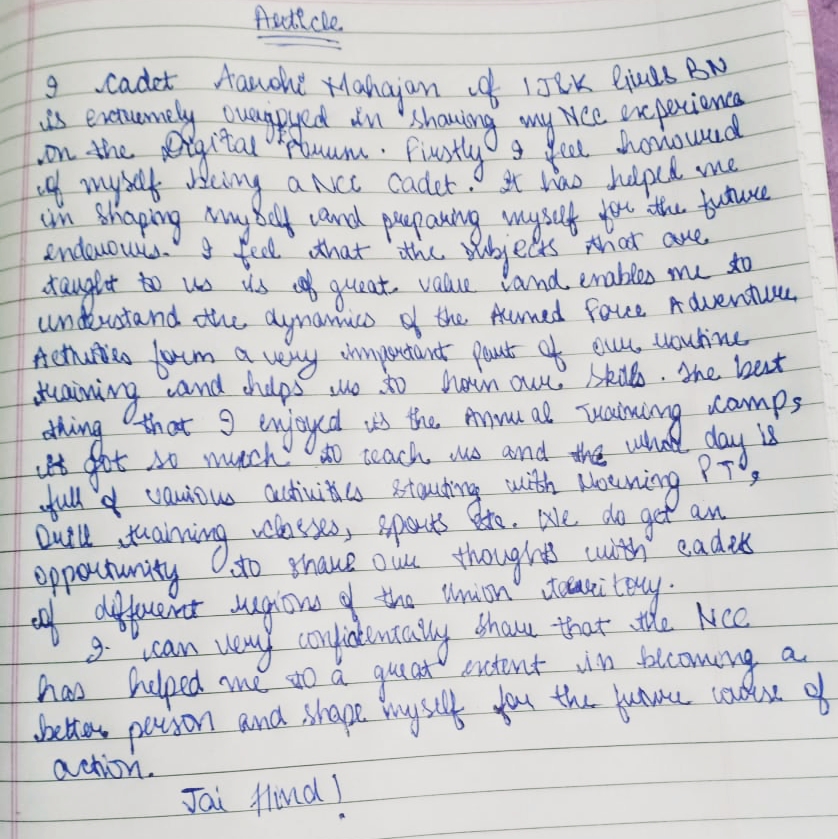 Article
I cadet Aarohi Mahajan of 1 J&K Girls BN
is extremely overjoyed in sharing my NCC experience
on the Digital Forum. Firstly I feel honoured
of myself being a NCC Cadet. It has helped me
in shaping myself and preparing myself for the future
endevours. I feel that the subjects that are
taught to us is of great value and enables me to
understand the dynamics of the Armed Force Adventure
Activities form a very important part of our routine
training and helps us to horn our skills. The best
thing that I enjoyed is the Annual Training camps
it got so much to teach us and the whol day is
full of various activities starting with Morning PT,
Drill training classes, sports etc. We do get an
opportunity to share our thoughts with cadets
of different regions of the Union territory.
I can very confidentally share that the NCC
has helped me to a great extent in becoming a
better person and shape myself for the future course of
action.
Jai Hind!